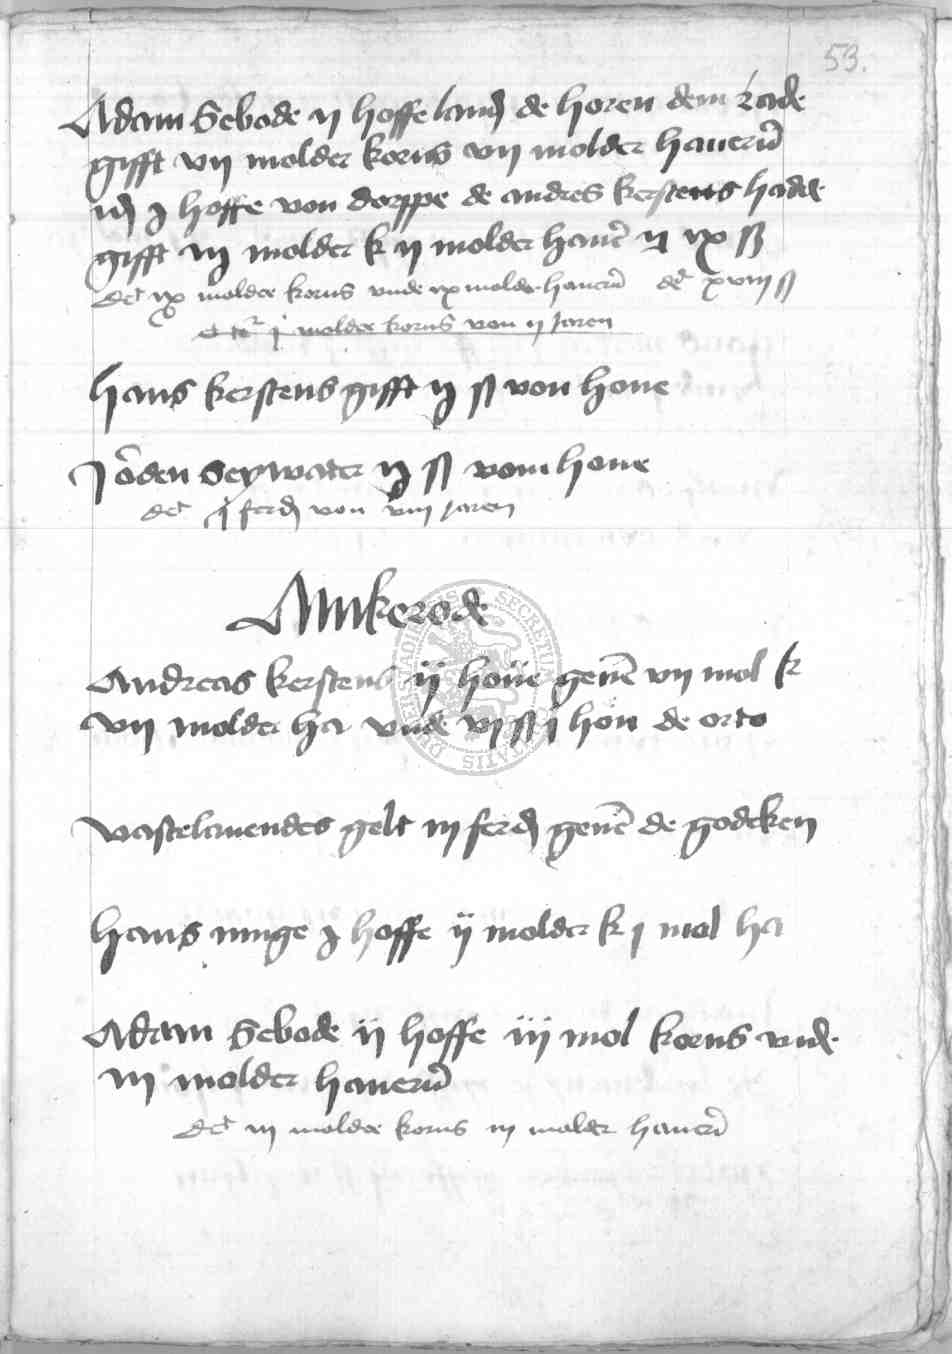 53.
Adam Sebode ij hoffe land de horen dem rade
gifft vij molder korns vij molder hauern
hoffe von dorppe de andres kerstens hadde
gifft iij molder k ij molder hauer ix ß
det ix molder korns vnde ix molder hauern det xviij ß
j molder korns von ij Jaren
hans kerstens gifft ß von houe
Jorden Seywater ß vom houe
det j ferd von viij Jaren
Ankerode
Andreas kerstens ij houe geuen vij mol k
vij molder ha vnde vj ß j hon de orto
vastelauendes gelt iij ferd geuen de godeken
hans ninge hoffe ij molder k j mol ha
Adam Sebode ij hoffe iij mol korns vnde
iij molder hauern
det iij molder korns iij molder hauern